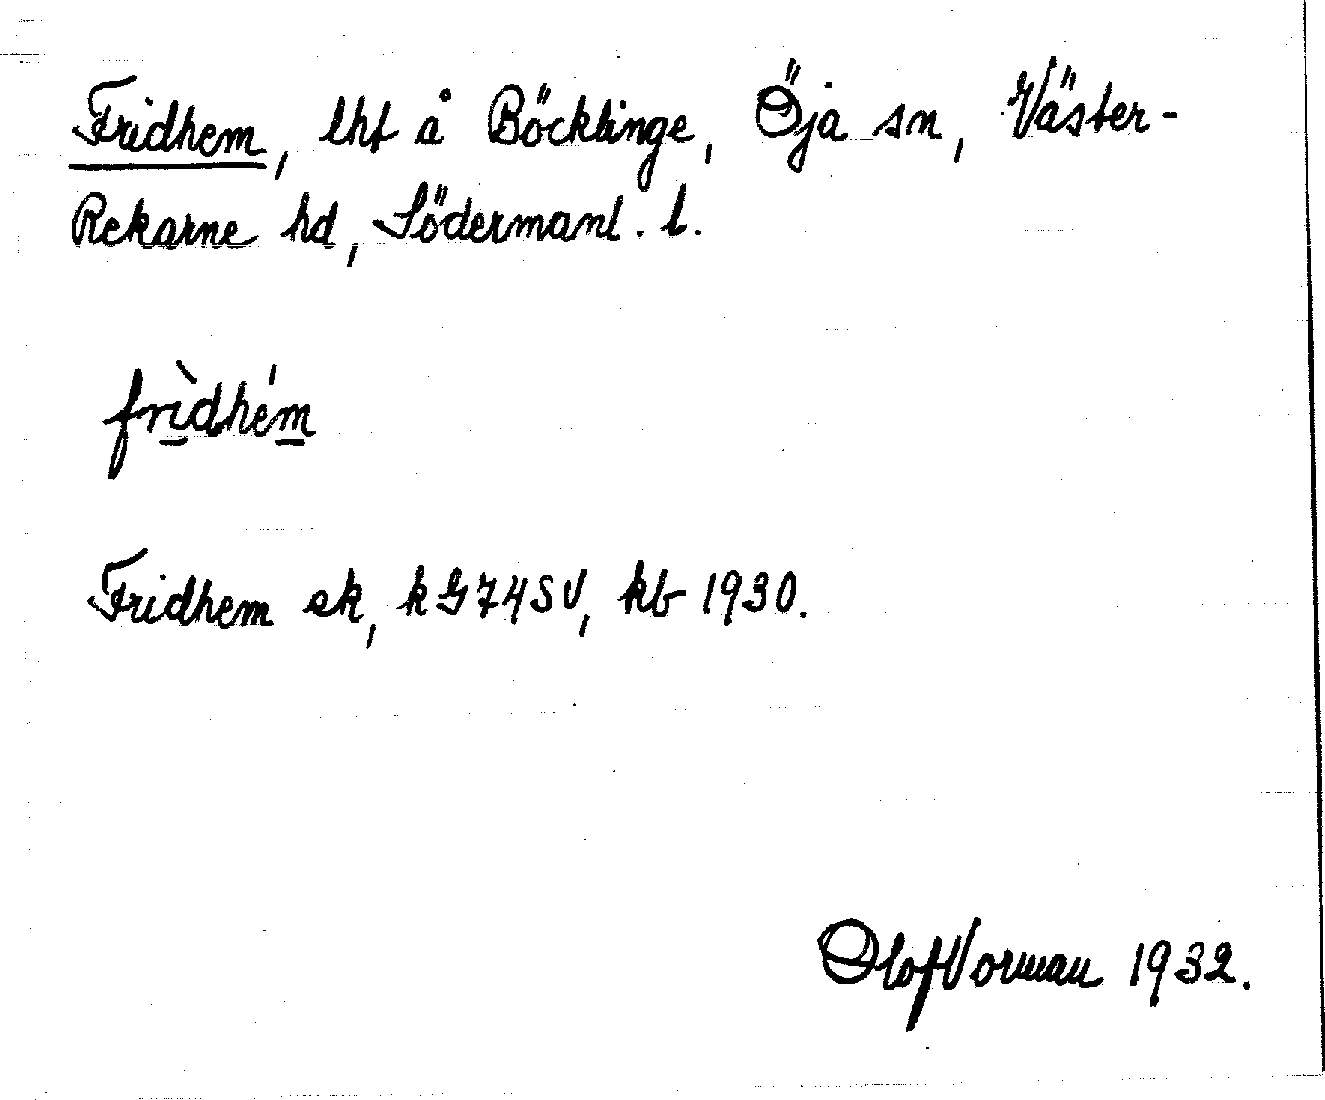 Fridhem, lht å Böcklinge, Öja sn, Väster-
Rekarne hd, Södermanl. l.
frìdhém
Fridhem ek, k G74SV, kb 1930.
Olof Vorman 1932.